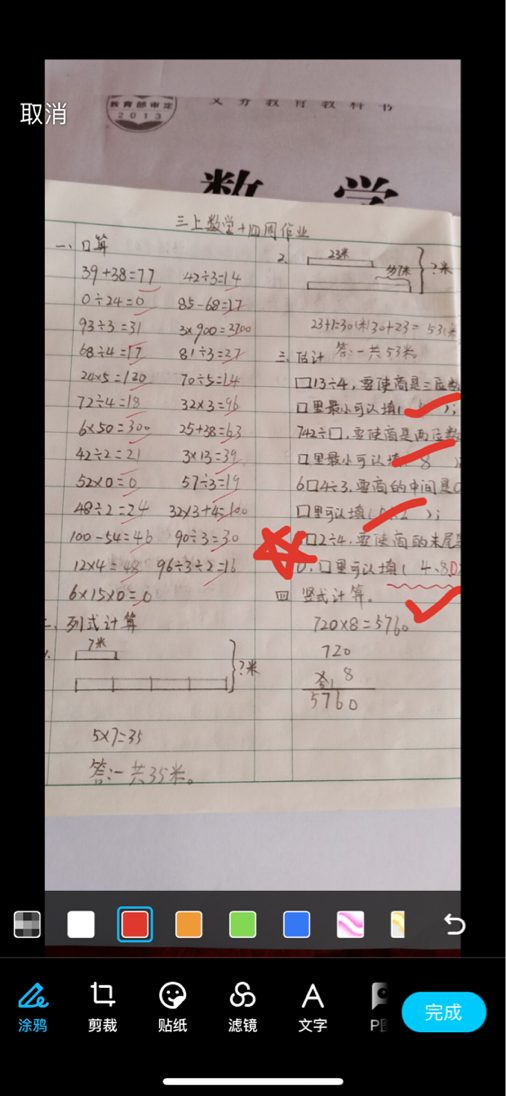 教育部审定
2013
义务教育教科书
取消
数学
三上数学十四周作业
一、口算
39+38=77 42÷3=14
0÷24=0 85-68=17
93÷3=31 3×900=2700
68÷4=17 81÷3=27
24×5=120 70÷5=14
72÷4=18 32×3=96
6×50=300 25+38=63
42÷2=21 3×13=39
52×0=0 57÷3=19
48÷2=24 32×3+4=100
100-54=46 90÷3=30
12×4=48 96÷3÷2=16
6×15×0=0
二、列式计算
7米
?米
5×7=35
答:一共35米。
2.
23米
?米
23+7=30(米) 30+23=53(米
答:一共53米。
三、估计
□13÷4,要使商是三位数
□里最小可以填( );
742÷□,要使商是两位数
□里最小可以填 8
6□4÷3,要商的中间是0
□里可以填( );
□2÷4,要使商的末尾
0,□里可以填( 4、8
四 竖式计算。
720×8=5760
720
8
5760
涂鸦
剪裁
贴纸
滤镜
文字
完成